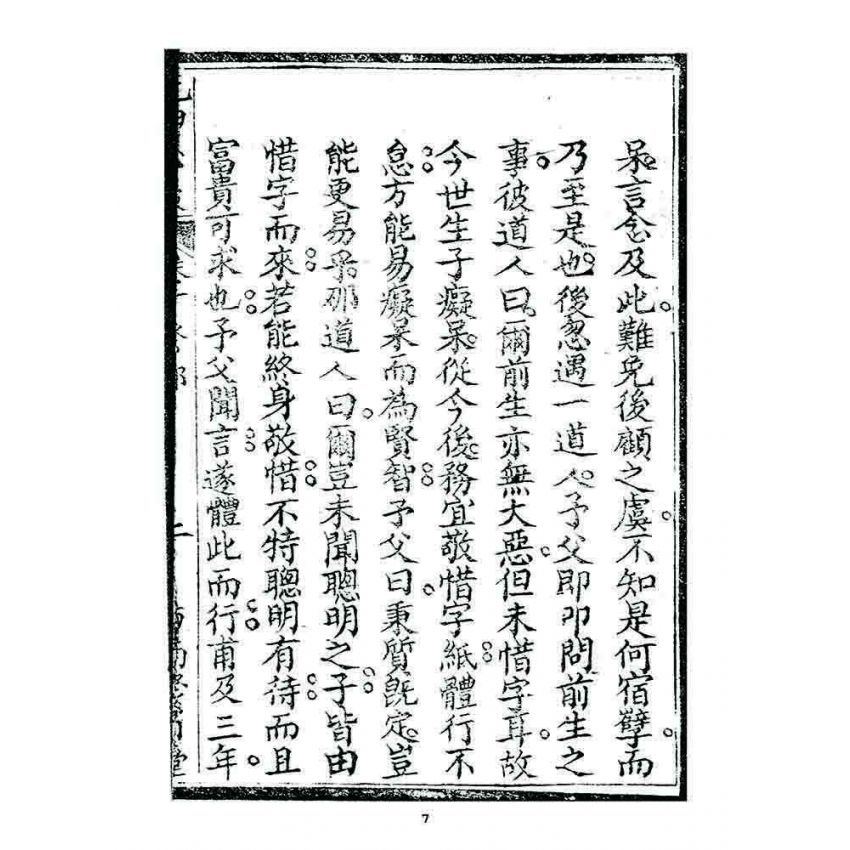 呆言念及此難免後顧之虞不知是何宿孽而
乃至是也後忽遇一道人予父即叩問前生之
事彼道人曰爾前生亦無大惡但未惜字耳故
今世生子癡呆從今後務宜敬惜字紙體行不
怠方能易癡呆而為賢智予父曰秉質既定豈
能更易乎那道人曰爾豈未聞聰明之子皆由
惜字而來若能終身敬惜不特聰明有待而且
富貴可求也予父聞言遂體此而行甫及三年
7